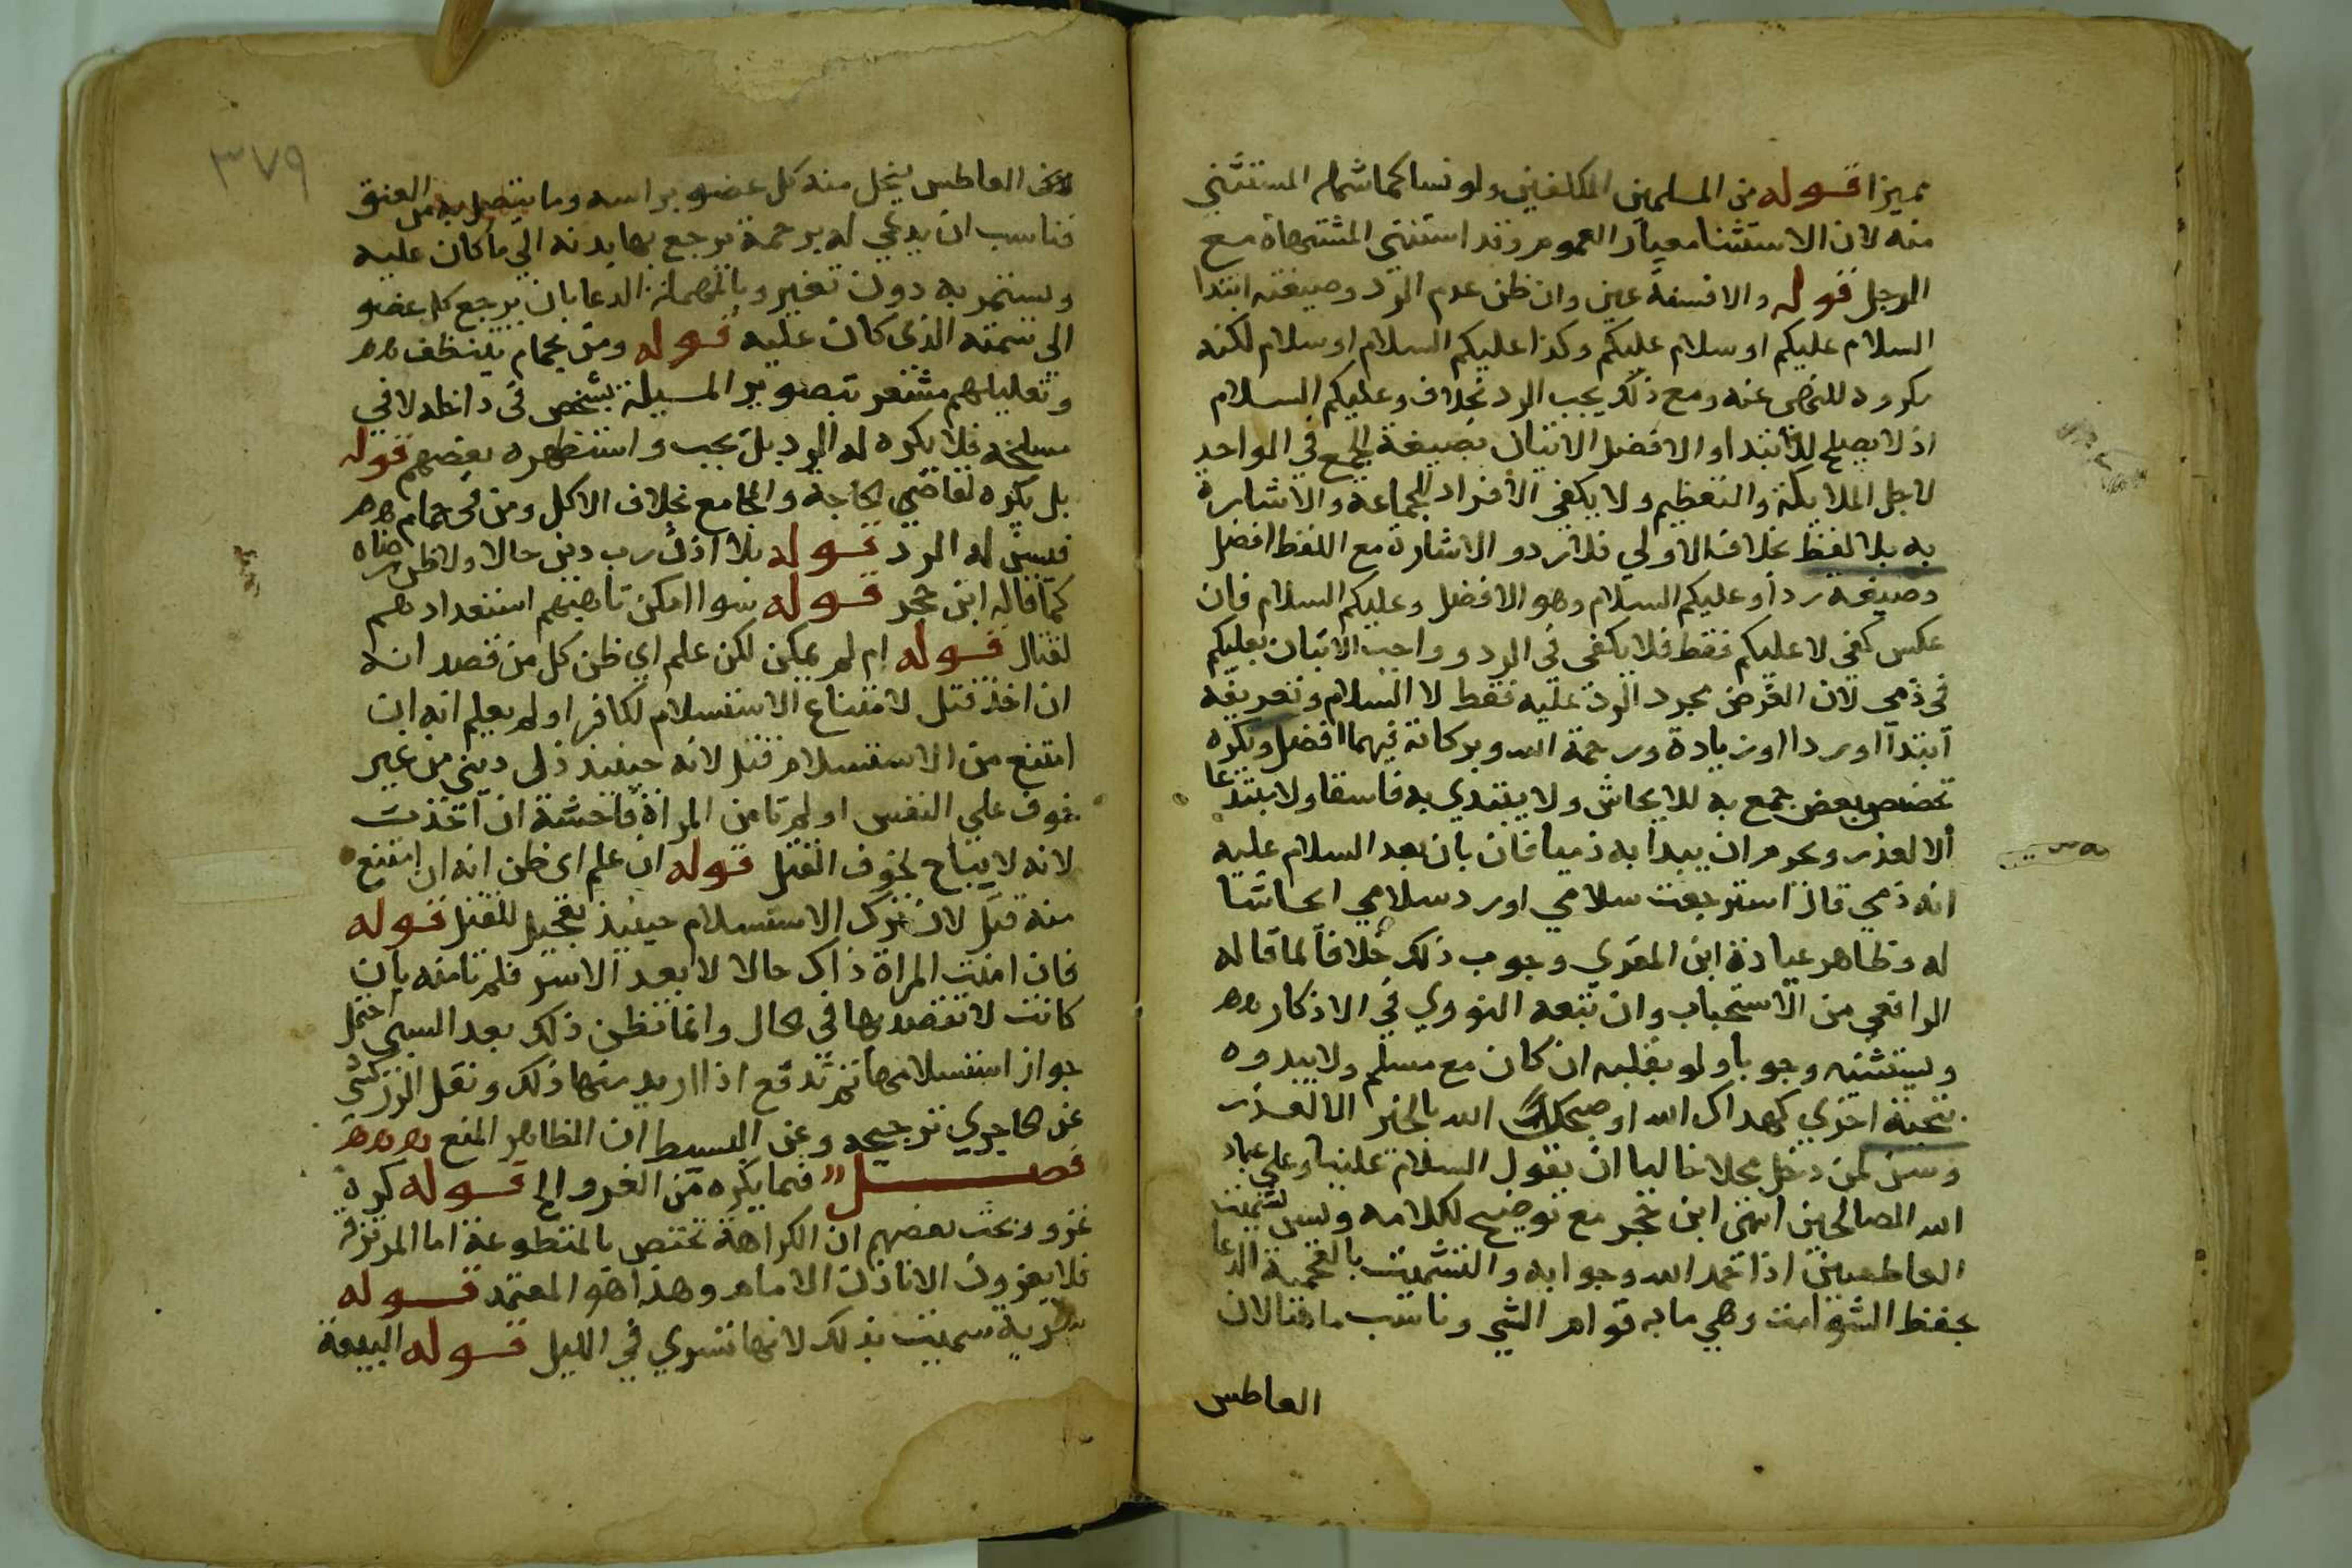 مميزا قوله من المسلمين المكلفين ولو نسا كما شمله المستثنى
منه لان الاستثنا معيار العموم وقد استثنى المشتهاة مع
الرجل قوله والا فسنة عين وان ظن عدم الرد وصيغته ابتدا
السلام عليكم او سلام عليكم وكذا عليكم السلام او سلام لكنه
مكروه للنهى عنه ومع ذلك يجب الرد بخلاف وعليكم السلام
اذ لا يصلح للابتدا والافضل الاتيان بصيغة الجمع في الواحد
لاجل الملايكة والتعظيم ولا يكفي الافراد للجماعة والاشارة
به بلا لفظ خلاف الاولي فلا رد والاشارة مع اللفظ افضل
وصيغة رد او عليكم السلام وهو الافضل وعليكم السلام فان
عكس كفى لا عليكم فقط فلا يكفى في الرد وواجب الاتيان بعليكم
في ذمي لان الغرض مجرد الرد عليه فقط لا السلام وتعريفه
ابتدا او ردا اوزيادة ورحمة الله وبركاته فيهما افضل ويكره
تخصيص بعض جمع به للايحاش ولا يبتدي به فاسقا ولا مبتدعا
الا لعذر ويحرم ان يبدا به ذميا فان بان بعد السلام عليه
انه ذمي قال استرجعت سلامي او رد سلامي ايحاشا
له وظاهر عبارة ابن المقري وجوب ذلك خلافا لما قاله
الرافعي من الاستحباب وان تبعه النووي في الاذكار
ويستثنيه وجوبا ولو بقلبه ان كان مع مسلم ولا يبدوه
بتحية اخري كهداك الله او صبحك الله بالخير الا لعذر
وسن لمن دخل محلا خاليا ان يقول السلام علينا وعلي عباد
الله الصالحين انتهى ابن حجر مع توضيح لكلامه ويسن تشميت
العاطس اذا حمد الله وجوابه والتشميت بالمعجمة الدعا
بحفظ الشوامت وهي ما به قوام الشي وناسب ما هنا لان
العاطس
٣٧٩
العاطس ينحل منه كل عضو براسه وما يتصل به من العنق
فناسب ان يدعي له برحمة يرجع بها بدنه الي ما كان عليه
ويستمر به دون تغير وبالمهملة الدعا بان يرجع كل عضو
الي سمته الذي كان عليه قوله ومن بحمام يتنظف
وتعليلهم مشعر بتصوير المسيلة بشخص في داخله لا في
مسلخه فلا يكره له الرد بل يجب واستظهره بعضهم قوله
بل يكره لقاضي الحاجة والمجامع بخلاف الاكل ومن في حمام
فيسن له الرد قوله بلا اذن رب دين حالا ولا ظن رضاه
كما قاله ابن حجر قوله سوا امكن تاهبهم استعدادهم
لقتال قوله ام لم يمكن لكن علم اي ظن كل من قصد انه
ان اخذ قتل لامتناع الاستسلام لكافر او لم يعلم انه ان
امتنع من الاستسلام قتل لانه حينيذ ذل ديني من غير
خوف علي النفس او لم تامن المراة فاحشة ان اخذت
لانه لا يباح لخوف القتل قوله ان علم اي ظن انه ان امتنع
منه قتل لان ترك الاستسلام حينيذ تعجيل للقتل قوله
فان امنت المراة ذاك حالا لا بعد الاسر فلم تامنه بان
كانت لا تقصد بها في الحال وانما تظن ذلك بعد السبي احتمل
جواز استسلامها ثم تدفع اذا اريد منها ذلك ونقل الزركشي
عن الحاجري ترجيحه وعن البسيط ان الظاهر المنع
فصل فيما يكره من الغزو الخ قوله كره
غزو وبحث بعضهم ان الكراهة تختص بالمتطوعة اما المرتزقة
فلا يغزون الا باذن الامام وهذا هو المعتمد قوله
سرية سميت بذلك لانها تسري في الليل قوله البيعة